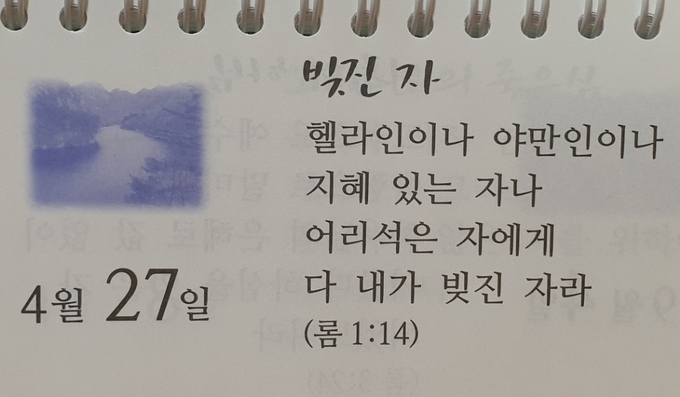 빚진 자
헬라인이나 야만인이나
지혜 있는 자나
어리석은 자에게
다 내가 빚진 자라
(롬 1:14)
4월 27일